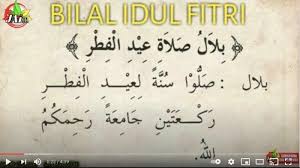 BILAL IDUL FITRI
﴿ بِلَالُ صَلَاةِ عِيْدِ الْفِطْرِ ﴾
بلال : صَلُّوْا سُنَّةً لِعِيْدِ الْفِطْرِ
رَكْعَتَيْنِ جَامِعَةً رَحِمَكُمُ
اللهُ.